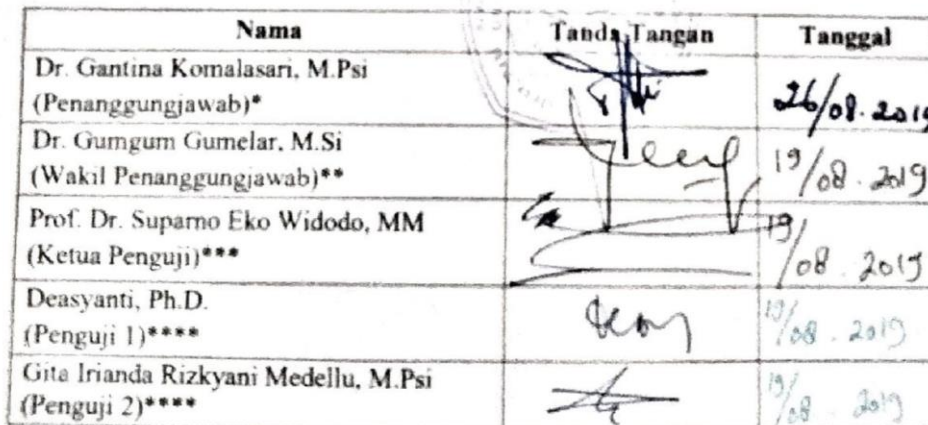 Nama Tanda Tangan Tanggal
Dr. Gantina Komalasari, M.Psi
(Penanggungjawab)* 26/08.2019
Dr. Gumgum Gumelar, M.Si
(Wakil Penanggungjawab)** 19/08.2019
Prof. Dr. Suparno Eko Widodo, MM
(Ketua Penguji)*** 19/08.2019
Deasyanti, Ph.D.
(Penguji 1)**** 19/08.2019
Gita Irianda Rizkyani Medellu, M.Psi
(Penguji 2)**** 19/08.2019